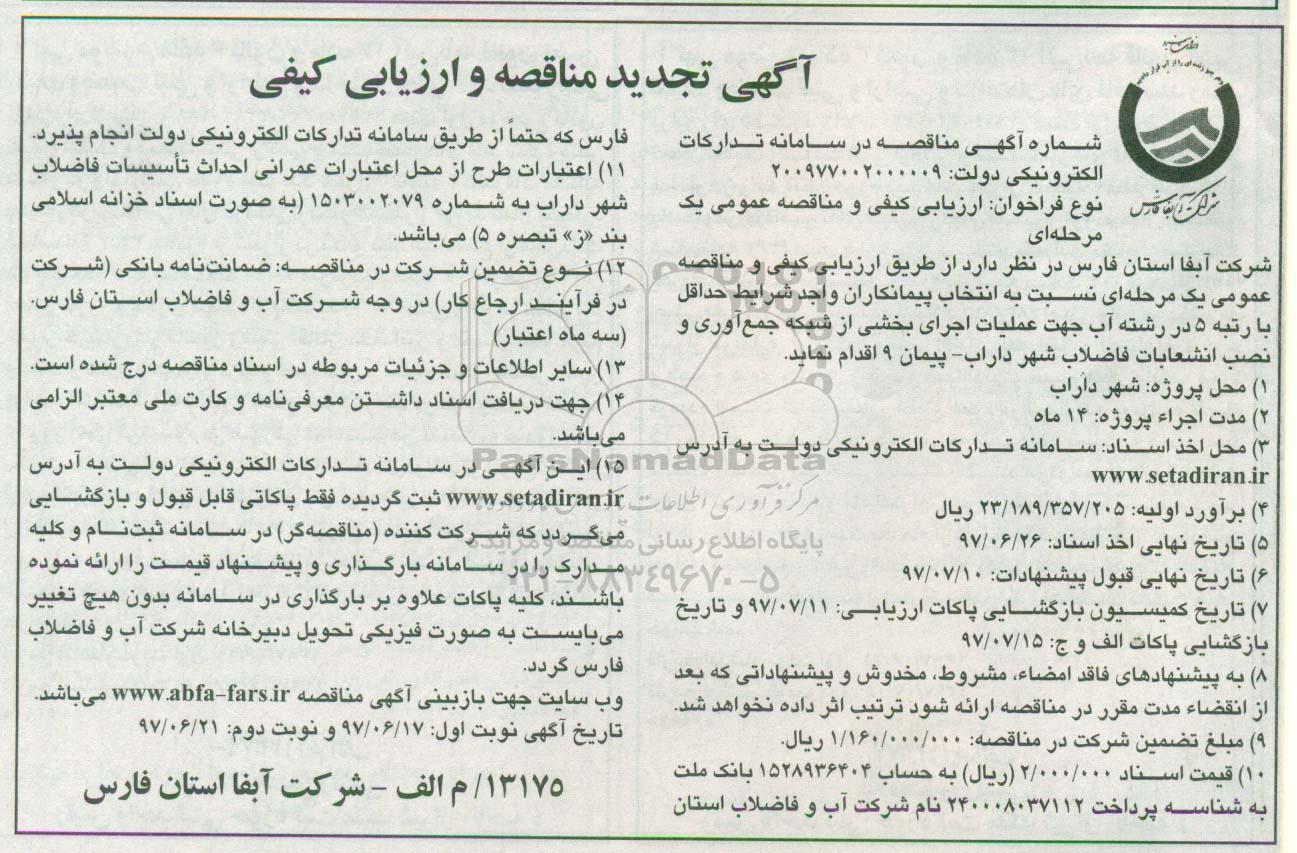 آگهی تجدید مناقصه و ارزیابی کیفی
شرکت آبفا فارس
شماره آگهی مناقصه در سامانه تدارکات
الکترونیکی دولت: ۲۰۰۹۷۷۰۰۲۰۰۰۰۰۹
نوع فراخوان: ارزیابی کیفی و مناقصه عمومی یک
مرحله‌ای
شرکت آبفا استان فارس در نظر دارد از طریق ارزیابی کیفی و مناقصه
عمومی یک مرحله‌ای نسبت به انتخاب پیمانکاران واجد شرایط حداقل
با رتبه ۵ در رشته آب جهت عملیات اجرای بخشی از شبکه جمع‌آوری و
نصب انشعابات فاضلاب شهر داراب- پیمان ۹ اقدام نماید.
۱) محل پروژه: شهر داراب
۲) مدت اجراء پروژه: ۱۴ ماه
۳) محل اخذ اسناد: سامانه تدارکات الکترونیکی دولت به آدرس
www.setadiran.ir
۴) برآورد اولیه: ۲۳/۱۸۹/۳۵۷/۲۰۵ ریال
۵) تاریخ نهایی اخذ اسناد: ۹۷/۰۶/۲۶
۶) تاریخ نهایی قبول پیشنهادات: ۹۷/۰۷/۱۰
۷) تاریخ کمیسیون بازگشایی پاکات ارزیابی: ۹۷/۰۷/۱۱ و تاریخ
بازگشایی پاکات الف و ج: ۹۷/۰۷/۱۵
۸) به پیشنهادهای فاقد امضاء، مشروط، مخدوش و پیشنهاداتی که بعد
از انقضاء مدت مقرر در مناقصه ارائه شود ترتیب اثر داده نخواهد شد.
۹) مبلغ تضمین شرکت در مناقصه: ۱/۱۶۰/۰۰۰/۰۰۰ ریال.
۱۰) قیمت اسناد ۲/۰۰۰/۰۰۰ (ریال) به حساب ۱۵۲۸۹۳۶۴۰۴ بانک ملت
به شناسه پرداخت ۲۴۰۰۰۸۰۳۷۱۱۲ نام شرکت آب و فاضلاب استان
فارس که حتماً از طریق سامانه تدارکات الکترونیکی دولت انجام پذیرد.
۱۱) اعتبارات طرح از محل اعتبارات عمرانی احداث تأسیسات فاضلاب
شهر داراب به شماره ۱۵۰۳۰۰۲۰۷۹ (به صورت اسناد خزانه اسلامی
بند «ز» تبصره ۵) می‌باشد.
۱۲) نوع تضمین شرکت در مناقصه: ضمانت‌نامه بانکی (شرکت
در فرآیند ارجاع کار) در وجه شرکت آب و فاضلاب استان فارس.
(سه ماه اعتبار)
۱۳) سایر اطلاعات و جزئیات مربوطه در اسناد مناقصه درج شده است.
۱۴) جهت دریافت اسناد داشتن معرفی‌نامه و کارت ملی معتبر الزامی
می‌باشد.
۱۵) این آگهی در سامانه تدارکات الکترونیکی دولت به آدرس
www.setadiran.ir ثبت گردیده فقط پاکاتی قابل قبول و بازگشایی
می‌گردد که شرکت کننده (مناقصه‌گر) در سامانه ثبت‌نام و کلیه
مدارک را در سامانه بارگذاری و پیشنهاد قیمت را ارائه نموده
باشند، کلیه پاکات علاوه بر بارگذاری در سامانه بدون هیچ تغییر
می‌بایست به صورت فیزیکی تحویل دبیرخانه شرکت آب و فاضلاب
فارس گردد.
وب سایت جهت بازبینی آگهی مناقصه www.abfa-fars.ir می‌باشد.
تاریخ آگهی نوبت اول: ۹۷/۰۶/۱۷ و نوبت دوم: ۹۷/۰۶/۲۱
۱۳۱۷۵/ م الف - شرکت آبفا استان فارس
ParsNamadData
پایگاه اطلاع رسانی مناقصه و مزایده
۰۲۱-۸۸۳۴۹۶۷۰-۵